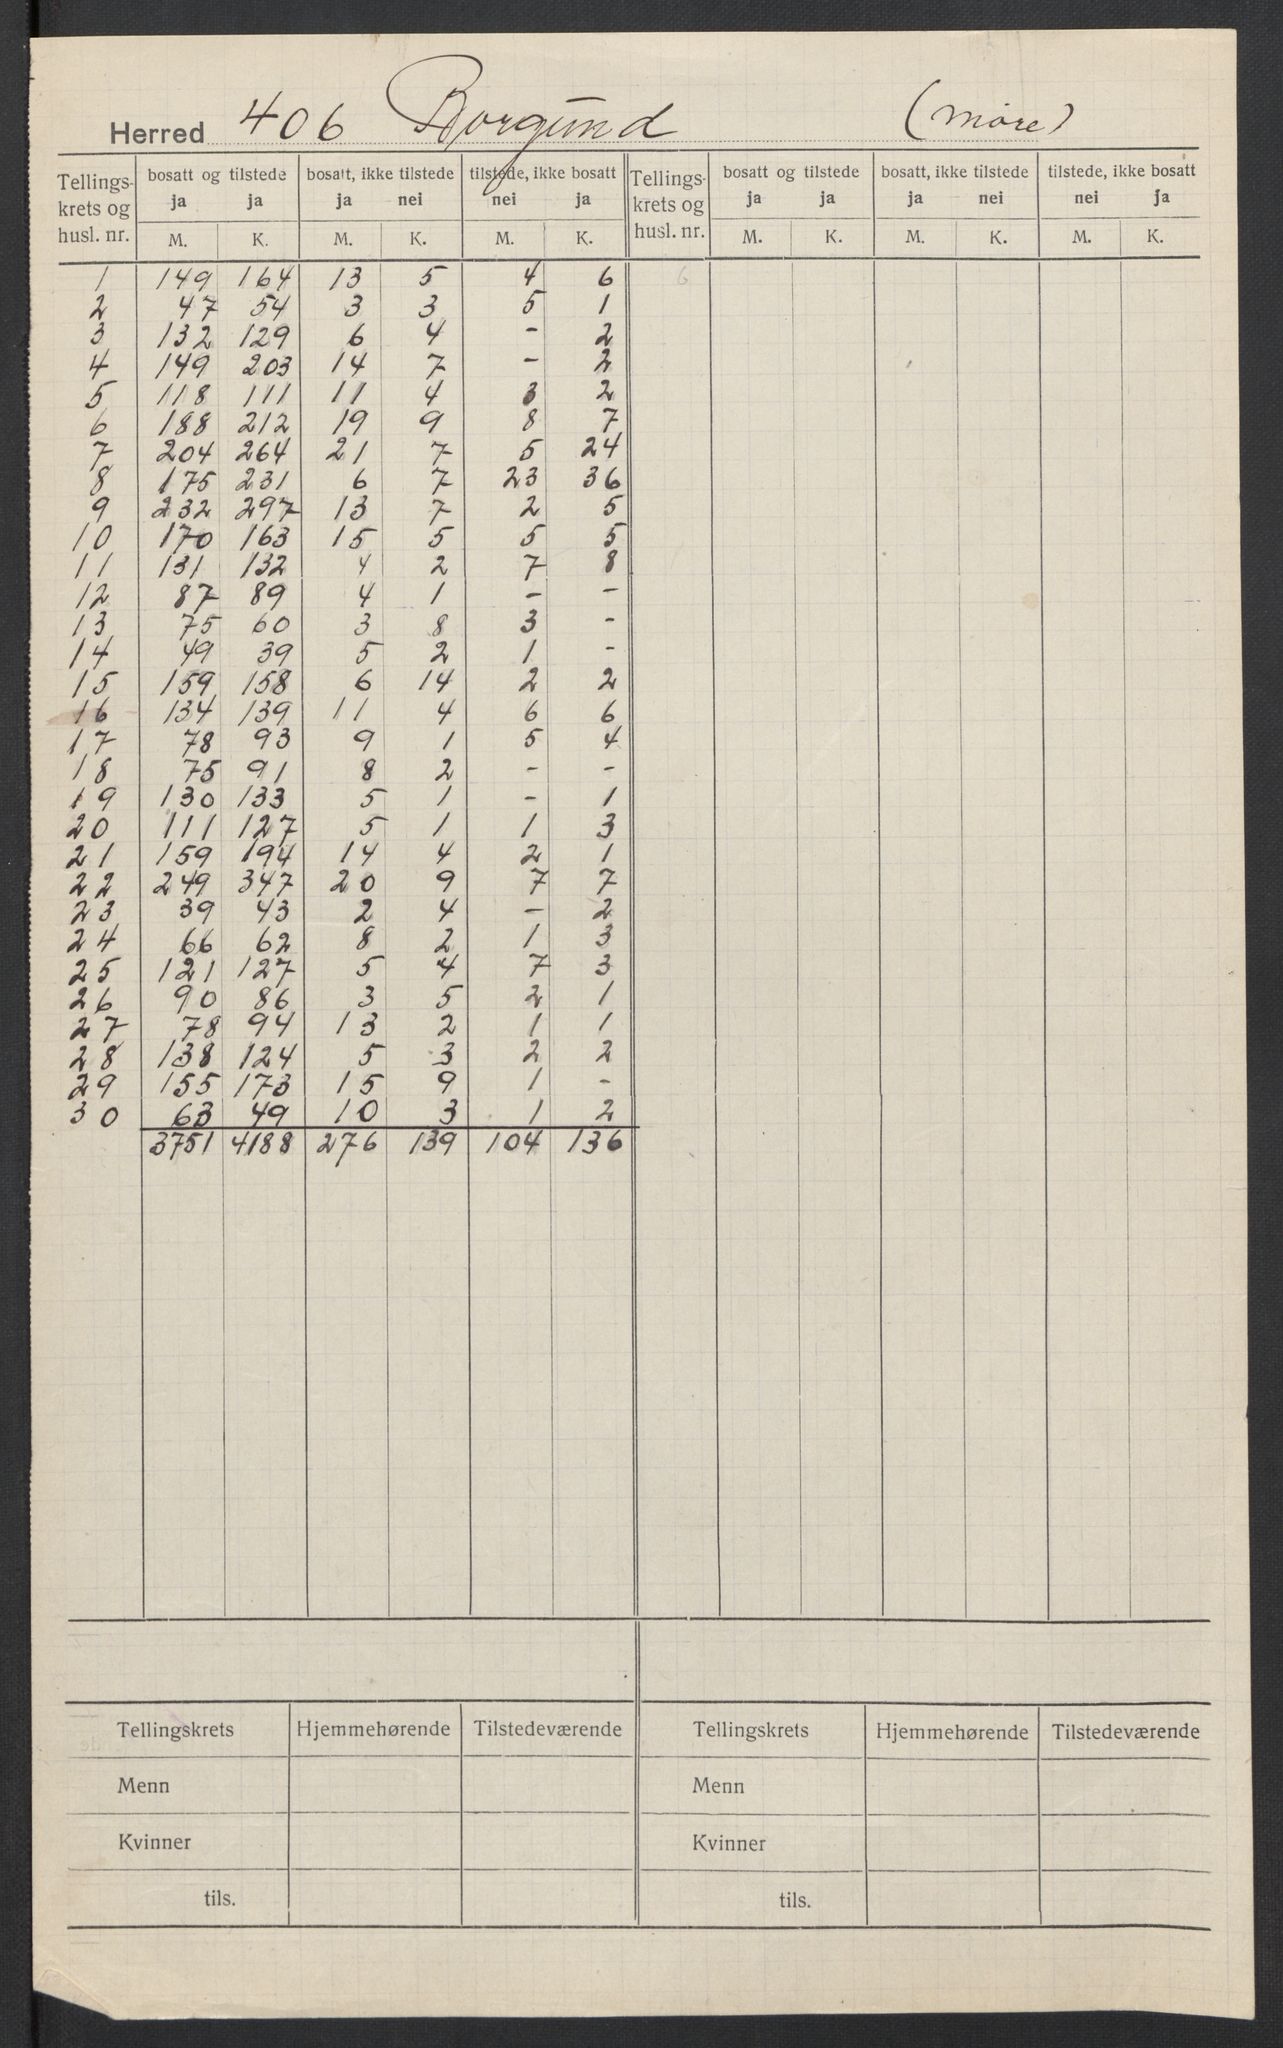 Herred 406 Borgund (Møre)
Tellings-krets og husl. nr. | bosatt og tilstede | bosatt, ikke tilstede | tilstede, ikke bosatt | Tellings-krets og husl. nr. | bosatt og tilstede | bosatt, ikke tilstede | tilstede, ikke bosatt
ja ja ja nei nei ja ja ja ja nei nei ja
M. K. M. K. M. K. M. K. M. K. M. K.
1 149 164 13 5 4 6 6
2 47 54 3 3 5 1
3 132 129 6 4 - 2
4 149 203 14 7 - 2
5 118 111 11 4 3 2
6 188 212 19 9 8 7
7 204 264 21 7 5 24
8 175 231 6 7 23 36
9 232 297 13 7 2 5
10 170 163 15 5 5 5
11 131 132 4 2 7 8
12 87 89 4 1 - -
13 75 60 3 8 3 -
14 49 39 5 2 1 -
15 159 158 6 14 2 2
16 134 139 11 4 6 6
17 78 93 9 1 5 4
18 75 91 8 2 - -
19 130 133 5 1 - 1
20 111 127 5 1 1 3
21 159 194 14 4 2 1
22 249 347 20 9 7 7
23 39 43 2 4 - 2
24 66 62 8 2 1 3
25 121 127 5 4 7 3
26 90 86 3 5 2 1
27 78 94 13 2 1 1
28 138 124 5 3 2 2
29 155 173 15 9 1 -
30 63 49 10 3 1 2
3751 4188 276 139 104 136
Tellingskrets Hjemmehørende Tilstedeværende Tellingskrets Hjemmehørende Tilstedeværende
Menn Menn
Kvinner Kvinner
tils. tils.